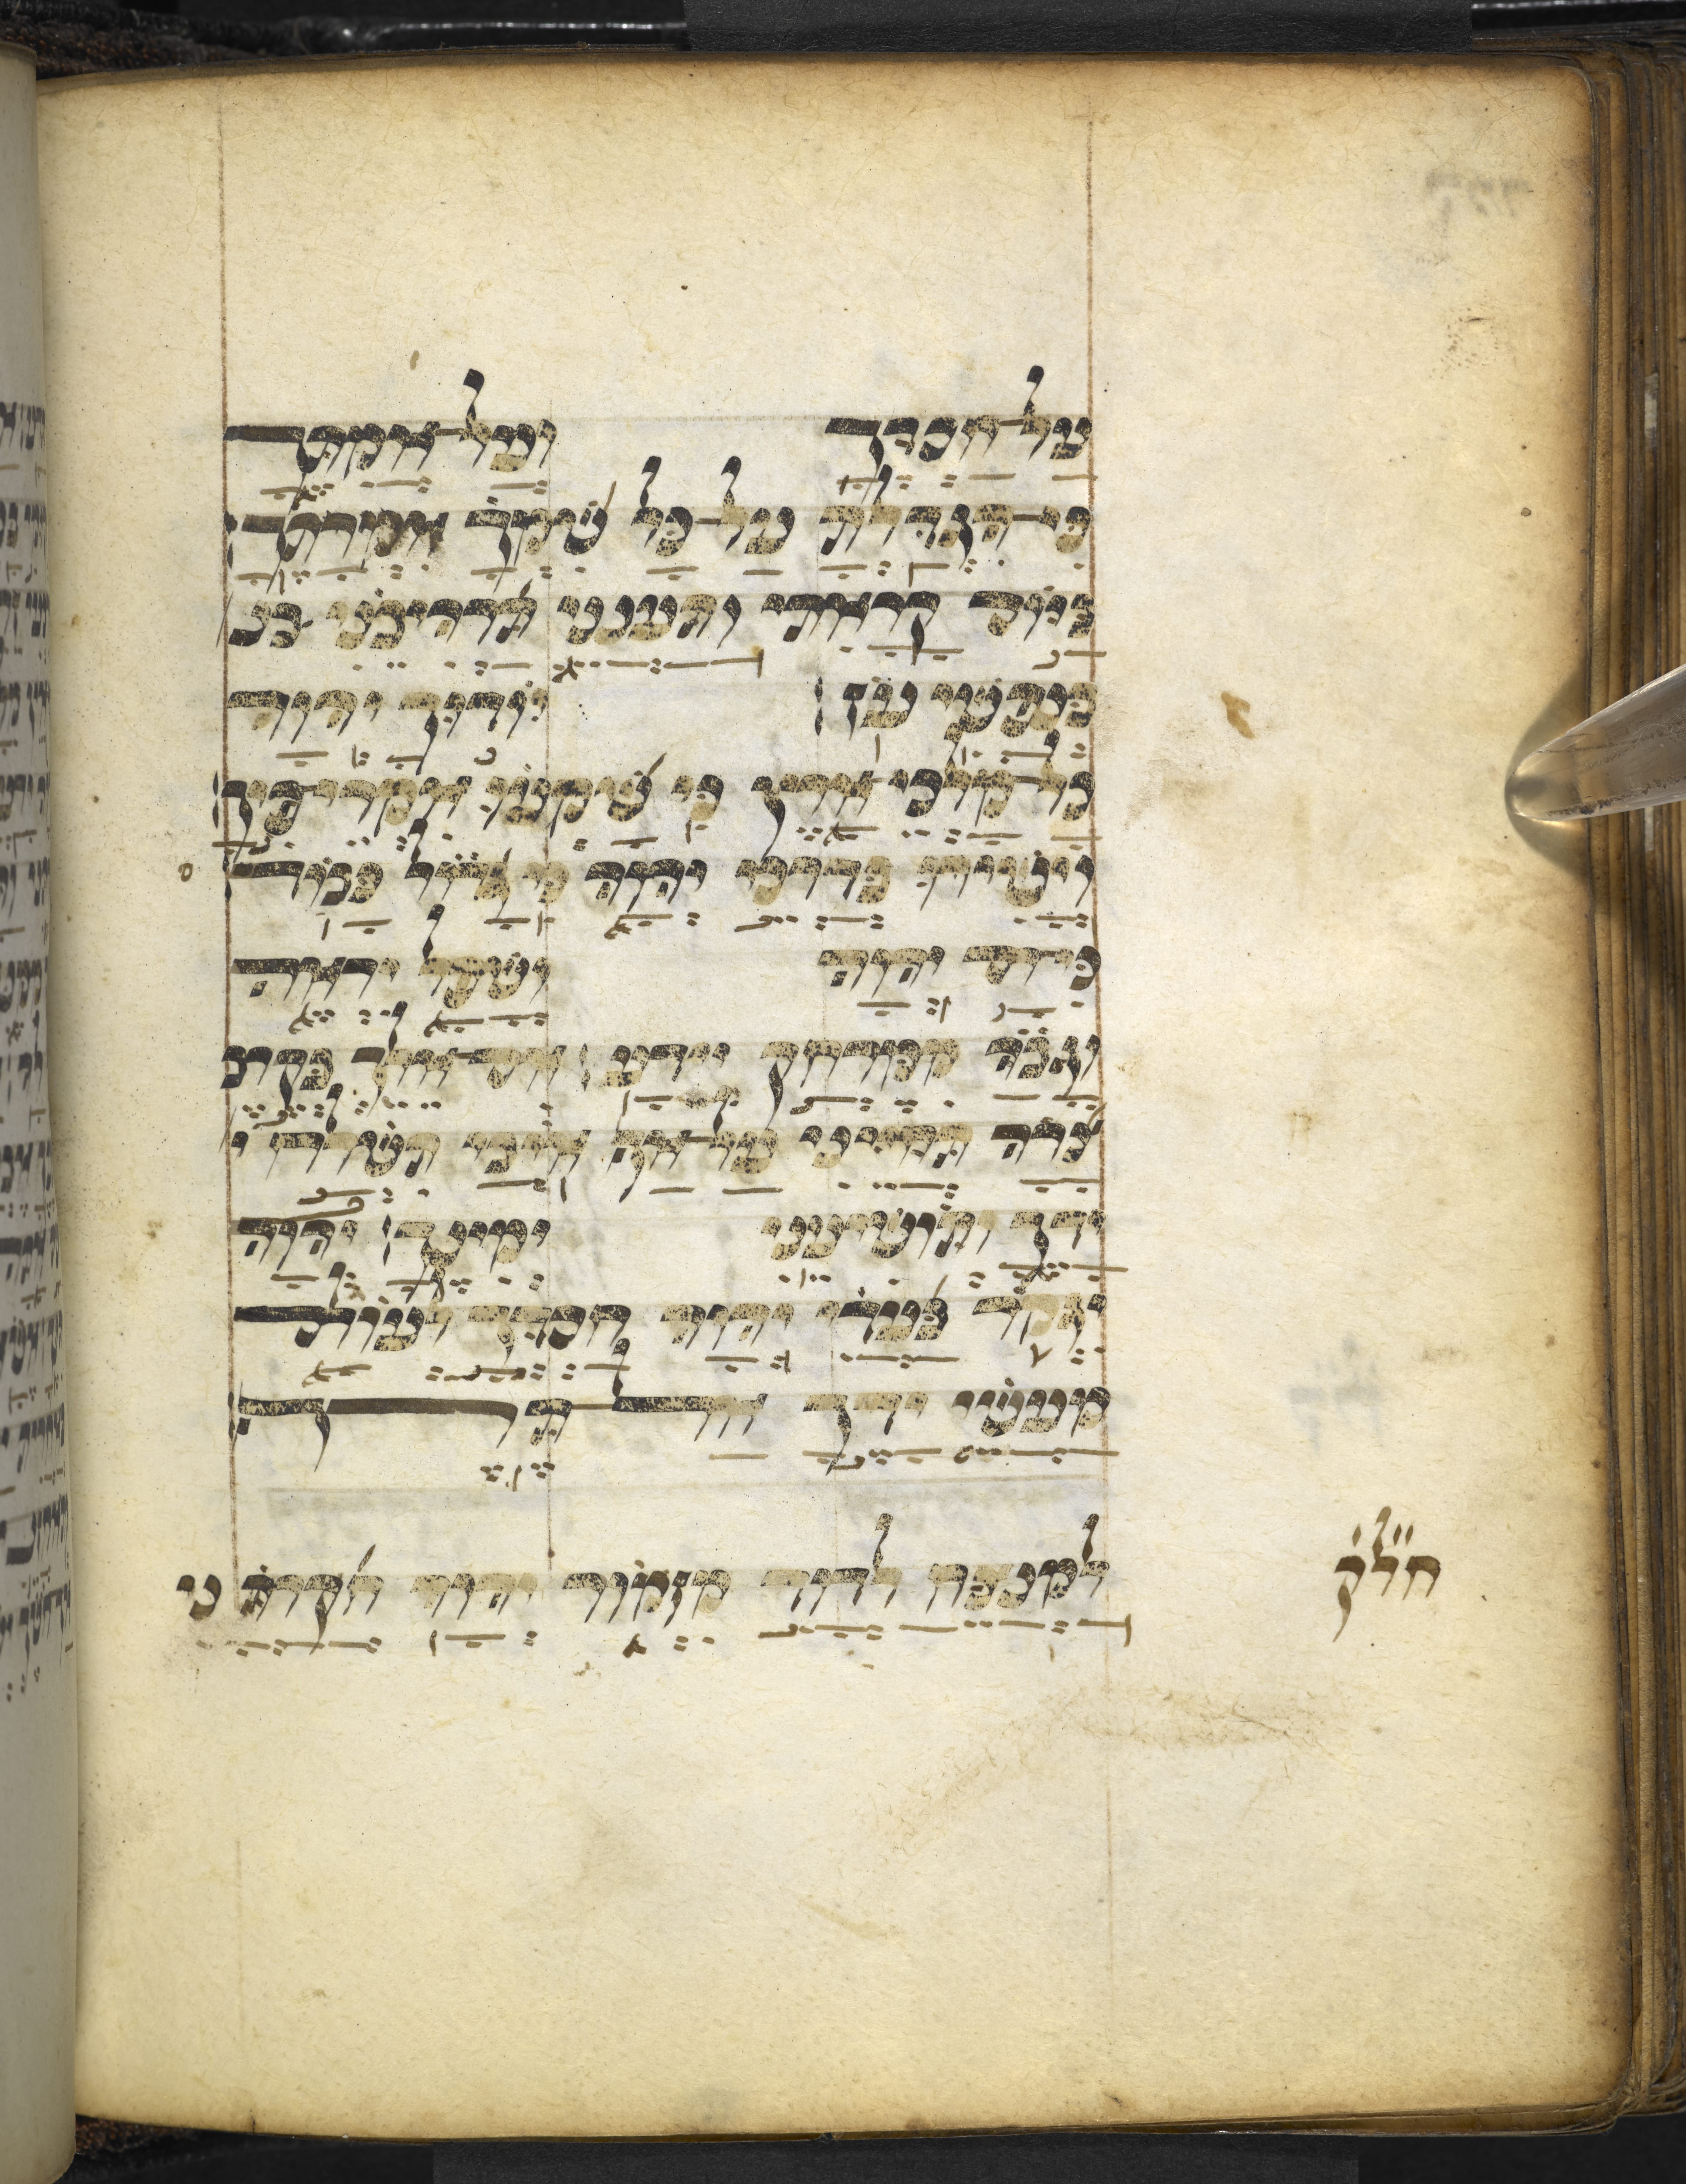 על חסדך ועל אמתך
כי הגדלת על כל שמך אמרתך
ביום קראתי ותענני תרהבני בנ
בנפשי עז יודוך יהוה
כל מלכי ארץ כי שמעו אמרי פיך
וישירו בדרכי יהוה כי גדול כבוד
כי רם יהוה ושפל יראה
וגבה ממרחק יידע אם אלך בקרב
צרה תחיני על אף איבי תשלח י
ידך ותושיעני ימינך יהוה
יגמר בעדי יהוה חסדך לעולם
מעשי ידיך אל תרף
למנצח לדוד מזמור יהוה חקרת ני
חלק